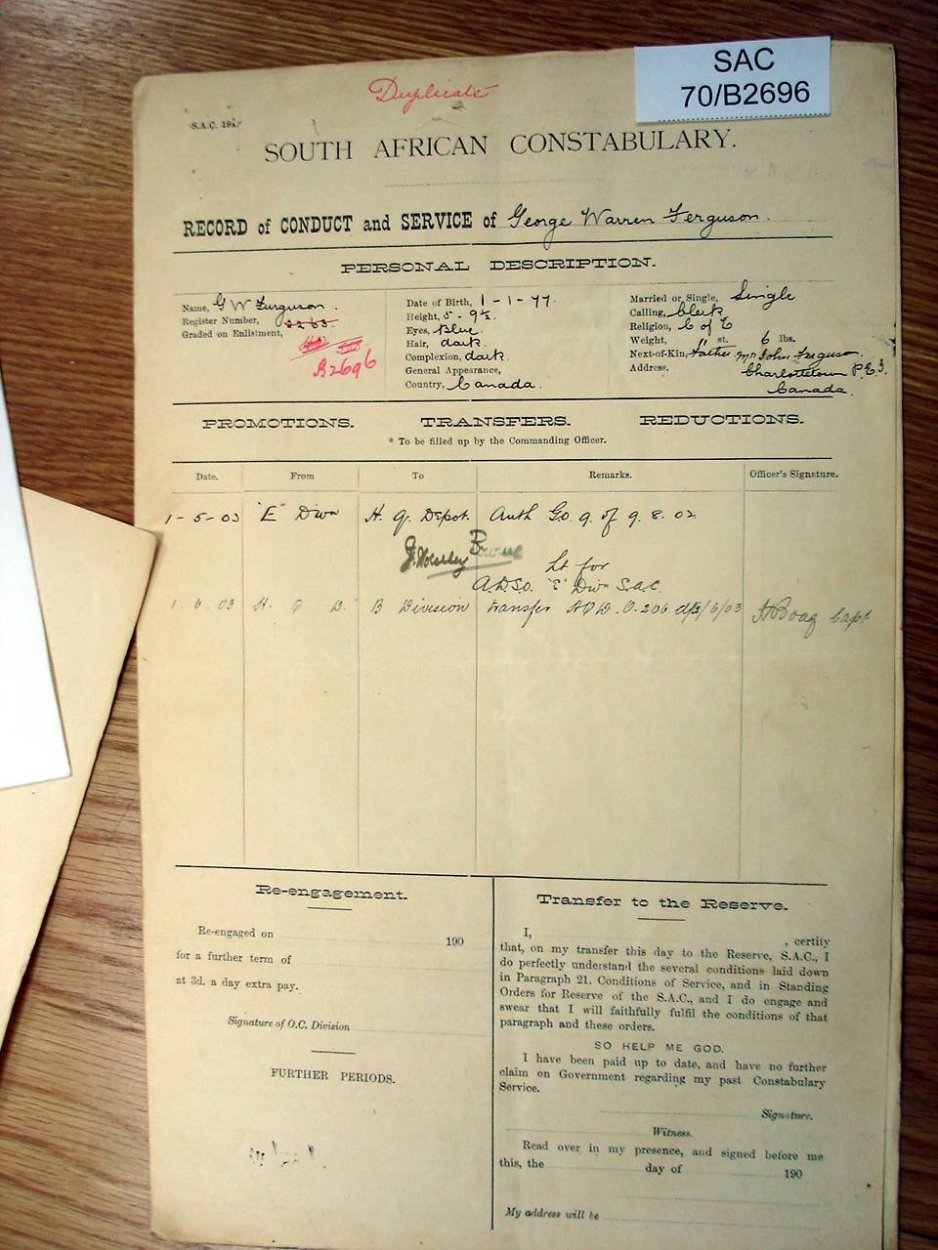 SAC
70/B2696
Duplicate
SOUTH AFRICAN CONSTABULARY.
RECORD of CONDUCT and SERVICE of George Warren Ferguson.
PERSONAL DESCRIPTION.
Name, G W Ferguson.
Register Number, 2263.
Graded on Enlistment,
B2696
Date of Birth, 1-1-77.
Height, 5 - 9½
Eyes, Blue.
Hair, dark.
Complexion, dark.
General Appearance,
Country, Canada.
Married or Single, Single
Calling, Clerk
Religion, C of E
Weight, 11 st. 6 lbs.
Next-of-Kin, Father John Ferguson
Address. Charlottetown P.E.I.
Canada.
PROMOTIONS. TRANSFERS. REDUCTIONS.
* To be filled up by the Commanding Officer.
Date. From To Remarks. Officer's Signature.
1-5-03 "E" Divn H. Q. Depot. Auth G.O. 9 of 9.8.02
Lt for
"E" Div S.A.C.
1.6.03 H. Q D. B Division transfer 206 Boag Capt
Re-engagement.
Re-engaged on 190
for a further term of
at 3d. a day extra pay.
Signature of O.C. Division
FURTHER PERIODS.
Transfer to the Reserve.
I, , certify
that, on my transfer this day to the Reserve, S.A.C., I
do perfectly understand the several conditions laid down
in Paragraph 21, Conditions of Service, and in Standing
Orders for Reserve of the S.A.C., and I do engage and
swear that I will faithfully fulfil the conditions of that
paragraph and these orders.
SO HELP ME GOD.
I have been paid up to date, and have no further
claim on Government regarding my past Constabulary
Service.
Signature.
Witness.
Read over in my presence, and signed before me
this, the day of 190
My address will be